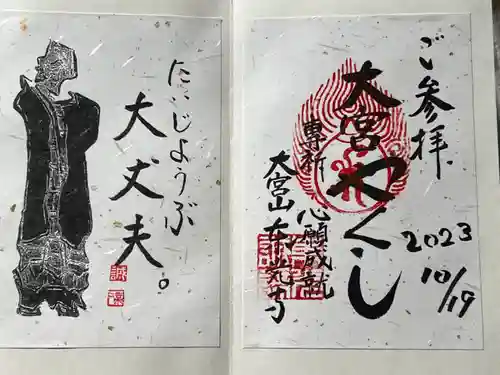 ご参拝
2023
10/19
大宮やくし
専祈
心願成就
大宮山東光寺
だいじょうぶ
大丈夫。